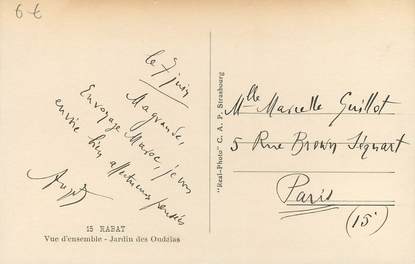 6€
le 7 juin
Ma grande,
En voyage Maroc, je vous
envoie bien affectueuses pensées
15 RABAT
Vue d'ensemble - Jardin des Oudaïas
"Real-Photo" C. A. P. Strasbourg
Mlle Marcelle Guillot
5 Rue Brown Séquart
Paris
(15e)